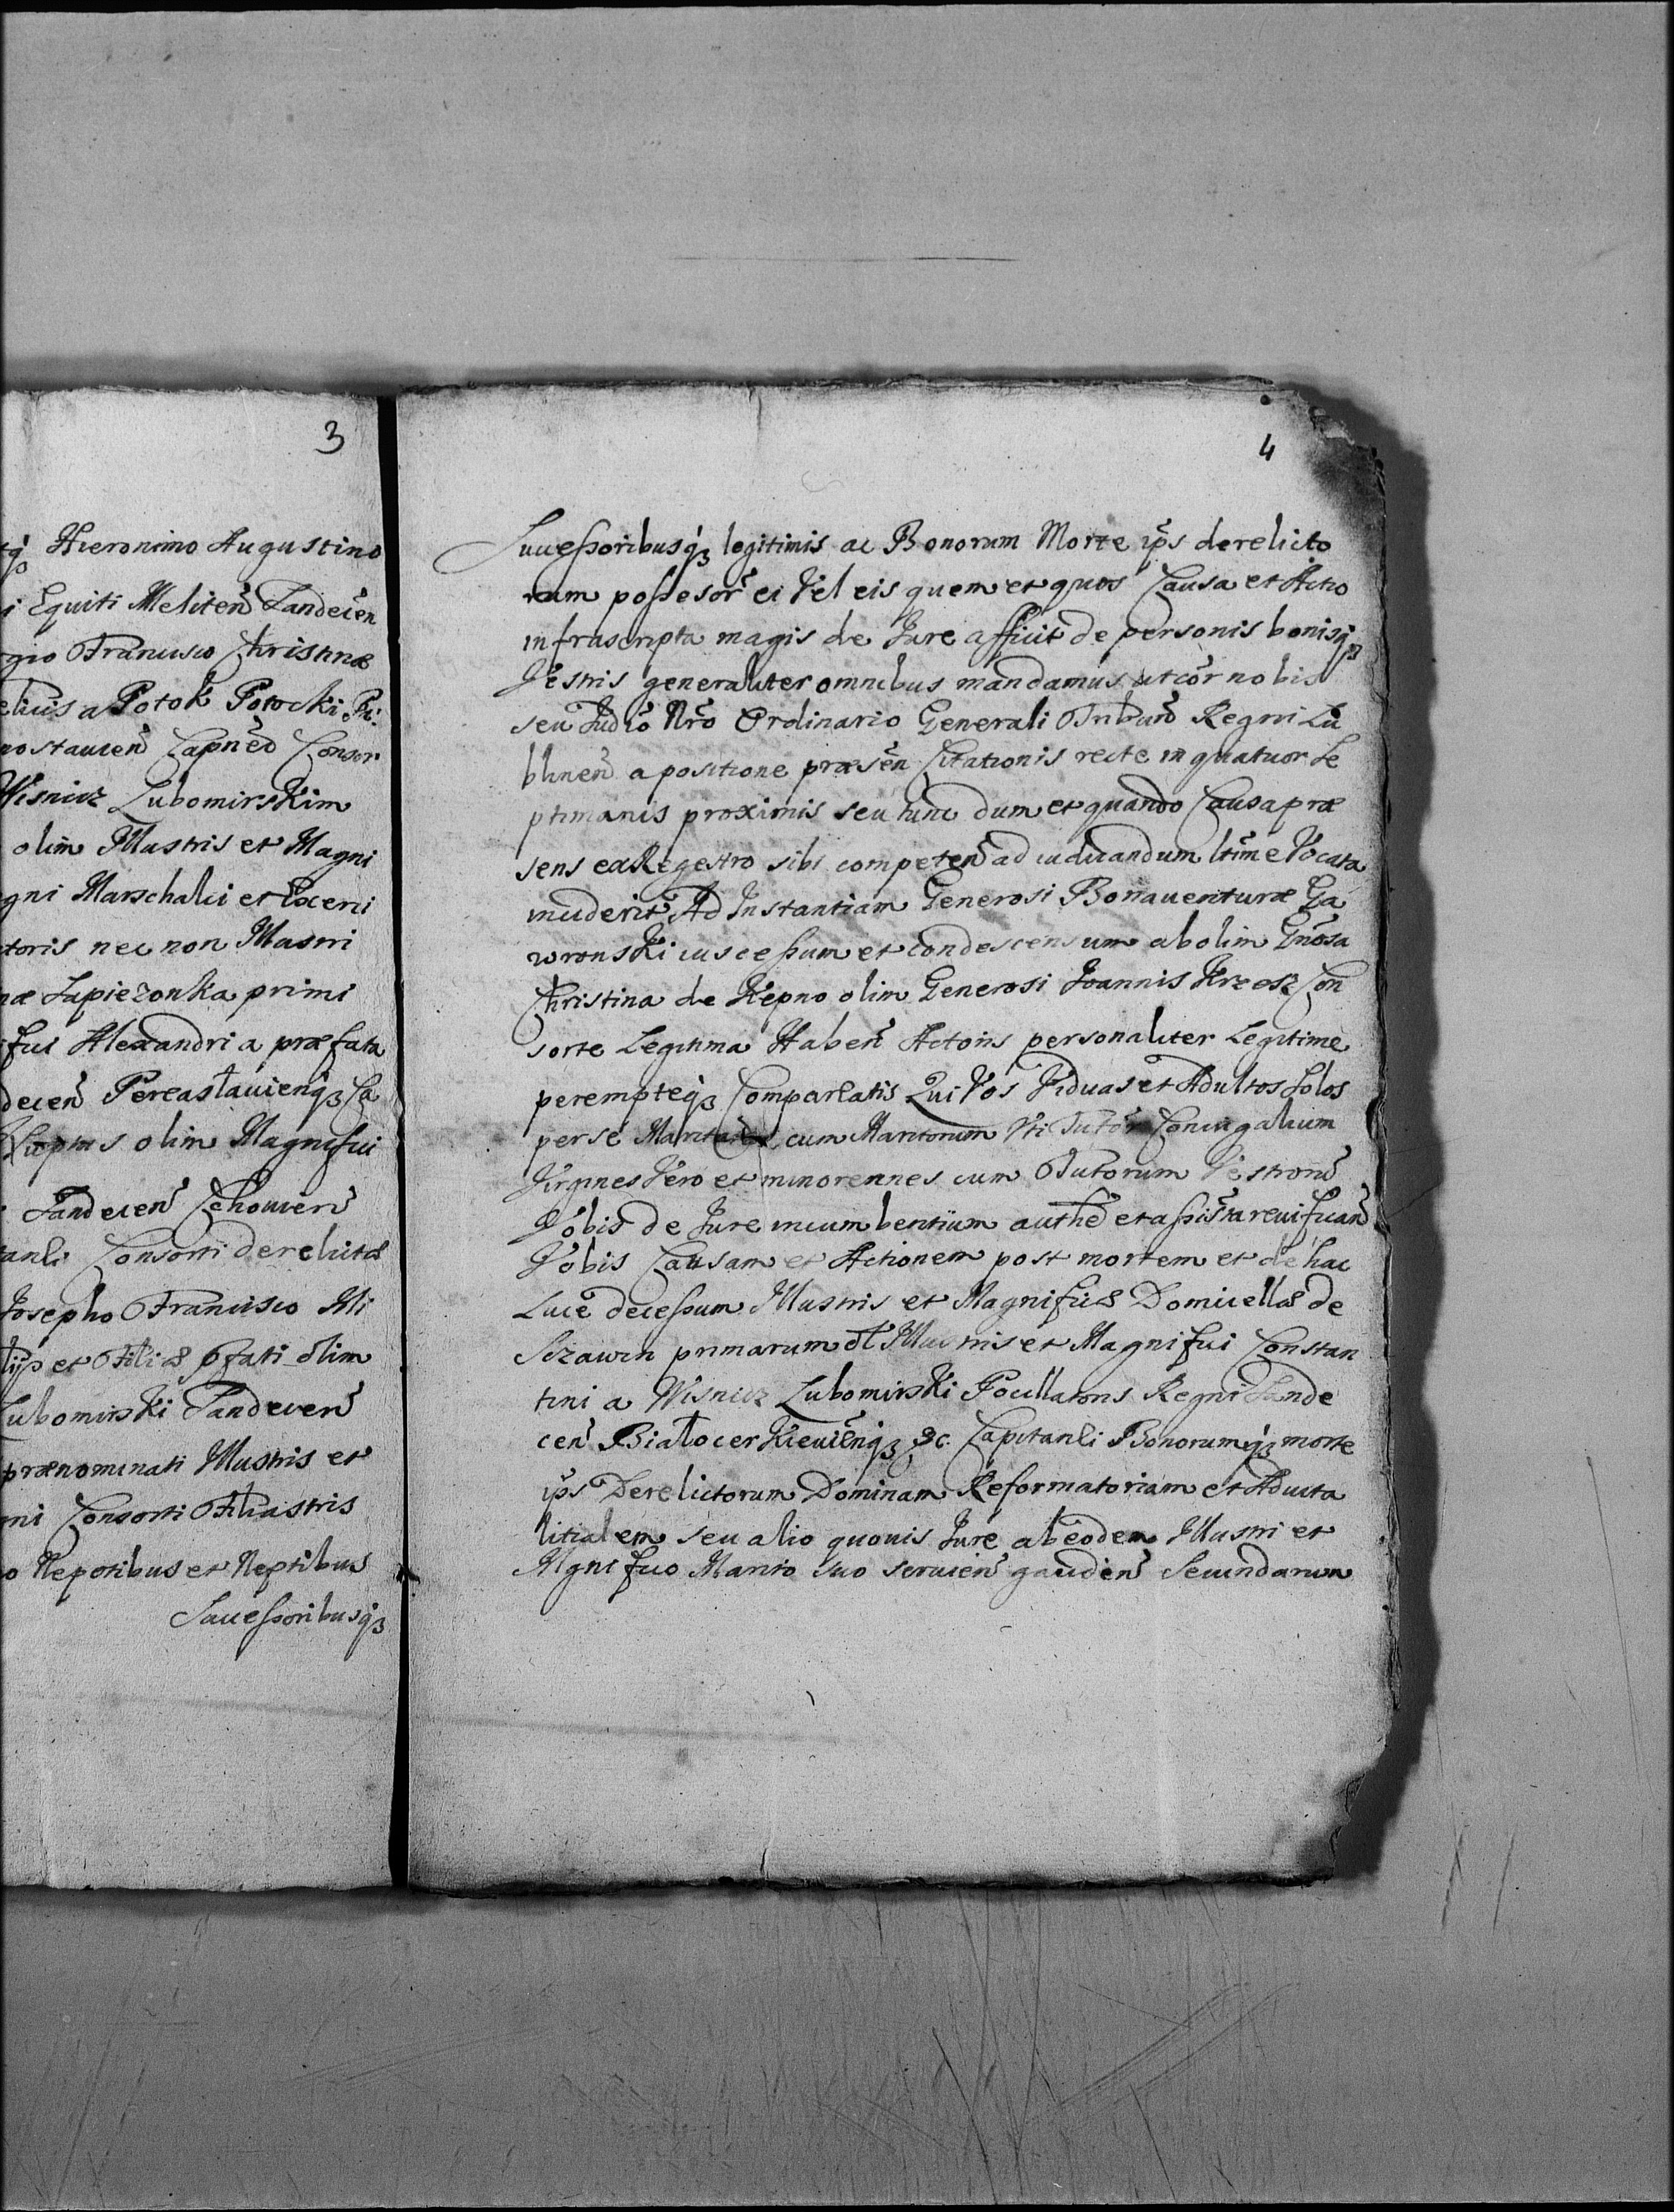 3
Hieronimo Augustino
Equiti Meliten̄ Sandecen̄
Francisco Christinæ
a Potok Potocki
Capn̄eo Consor
Wisnicz Lubomirskim
olim Illustris et Magni
gni Marschalci et Exerci
toris nec non Illustri
Sapiezonka primi
fici Alexandri a præfata
decen̄ Pereaslaвienqȝ Ca
olim Magnifici
Sandecen̄ Zchovien̄
Consorti derelictæ
Josepho Francisco Illi
lijs et Filiæ pfati olim
Lubomirski Sandecen̄
prænominati Illustris et
ni Consorti Filiastris
o Nepotibus et Neptibus
Successoribusqȝ
4
Successoribusqȝ legitimis ac Bonorum Morte ip̄s derelicto
rum possesor̄ ei Vel eis quem et quos Causa et Actio
infrascripta magis de Jure afficit de personis bonisqȝ
Vestris generaliter omnibus mandamus ut cor̄ nobis
seu Judio Nr̄o Ordinario Generali Tribun̄ Regni Lu
blinen̄ a positione præsen̄ Citationis recte in quatuor Se
ptimanis proximis seu tunc dum et quando Causa præ
sens ex Regestro sibi competen̄ ad iudicandum ltime Vocata
inciderit Ad Instantiam Generosi Bonaventuræ Ga
wronski ius cessum et condescensum ab olim Gn̄osa
Christina de Kepno olim Generosi Joannis Krzesz Con
sorte Legitima Haben̄ Actoris personaliter Legitime
perempteqȝ Compareatis Qui Vos Viduas et Adultos Solos
per se Maritatas cum Maritorum Vti Tutor̄ Coniugalium
Virgines Vero et minorennes cum Tutorum Vestrorū
Vobis de Jure incumbentium authē et assis̄ta revifican̄
Vobis Causam et Actionem post mortem et de hac
Luce decessum Illustris et Magnificæ Domicellæ de
Sczawin primarum ol̄ Illustris et Magnifici Constan
tini a Wisnicz Lubomirski Pocillatoris Regni Sande
cen̄ Białocerkievien̄qȝ &c. Capitanli Bonorumqȝ morte
ip̄s Derelictorum Dominam Reformatoriam et Advita
litialem seu alio quovis Jure ab eodem Illustri et
Mgnifico Marito suo servien̄ gauden̄ Secundarum